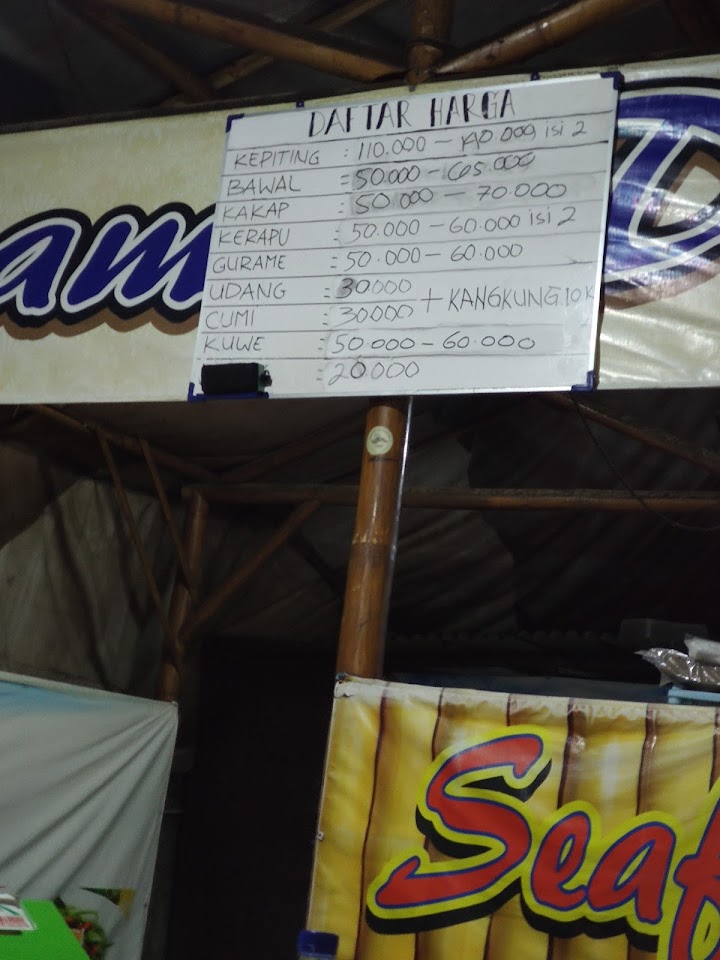 DAFTAR HARGA
KEPITING : 110.000 - 140.000 isi 2
BAWAL = 50.000 - 65.000
KAKAP = 50.000 - 70.000
KERAPU : 50.000 - 60.000 isi 2
GURAME : 50.000 - 60.000
UDANG : 30000
+ KANGKUNG.10K
CUMI : 30000
KUWE : 50.000 - 60.000
: 20000
am
Seaf